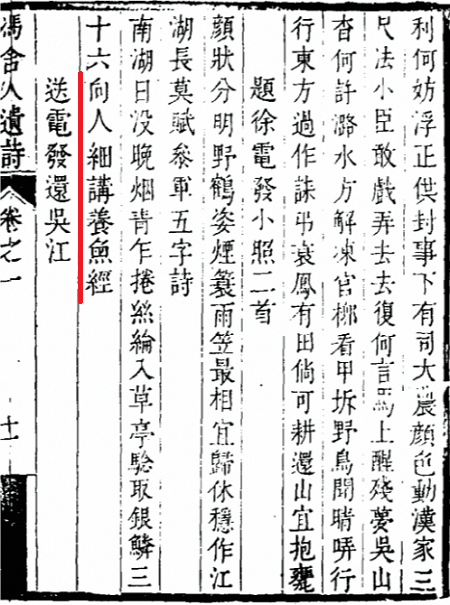 利何妨浮正供封事下有司大農顏色動漢家三
尺法小臣敢戲弄去去復何言馬上醒殘夢吳山
杳何許潞水方解凍官柳看甲坼野鳥聞晴哢行
行東方過作誄弔哀鳳有田倘可耕還山宜抱甕
題徐電發小照二首
顏狀分明野鶴姿煙簑雨笠最相宜歸休穩作江
湖長莫賦參軍五字詩
南湖日没晚烟青乍捲絲綸入草亭驗取銀鱗三
十六向人細講養魚經
送電發還吳江
馮舍人遺詩 卷之一 十一